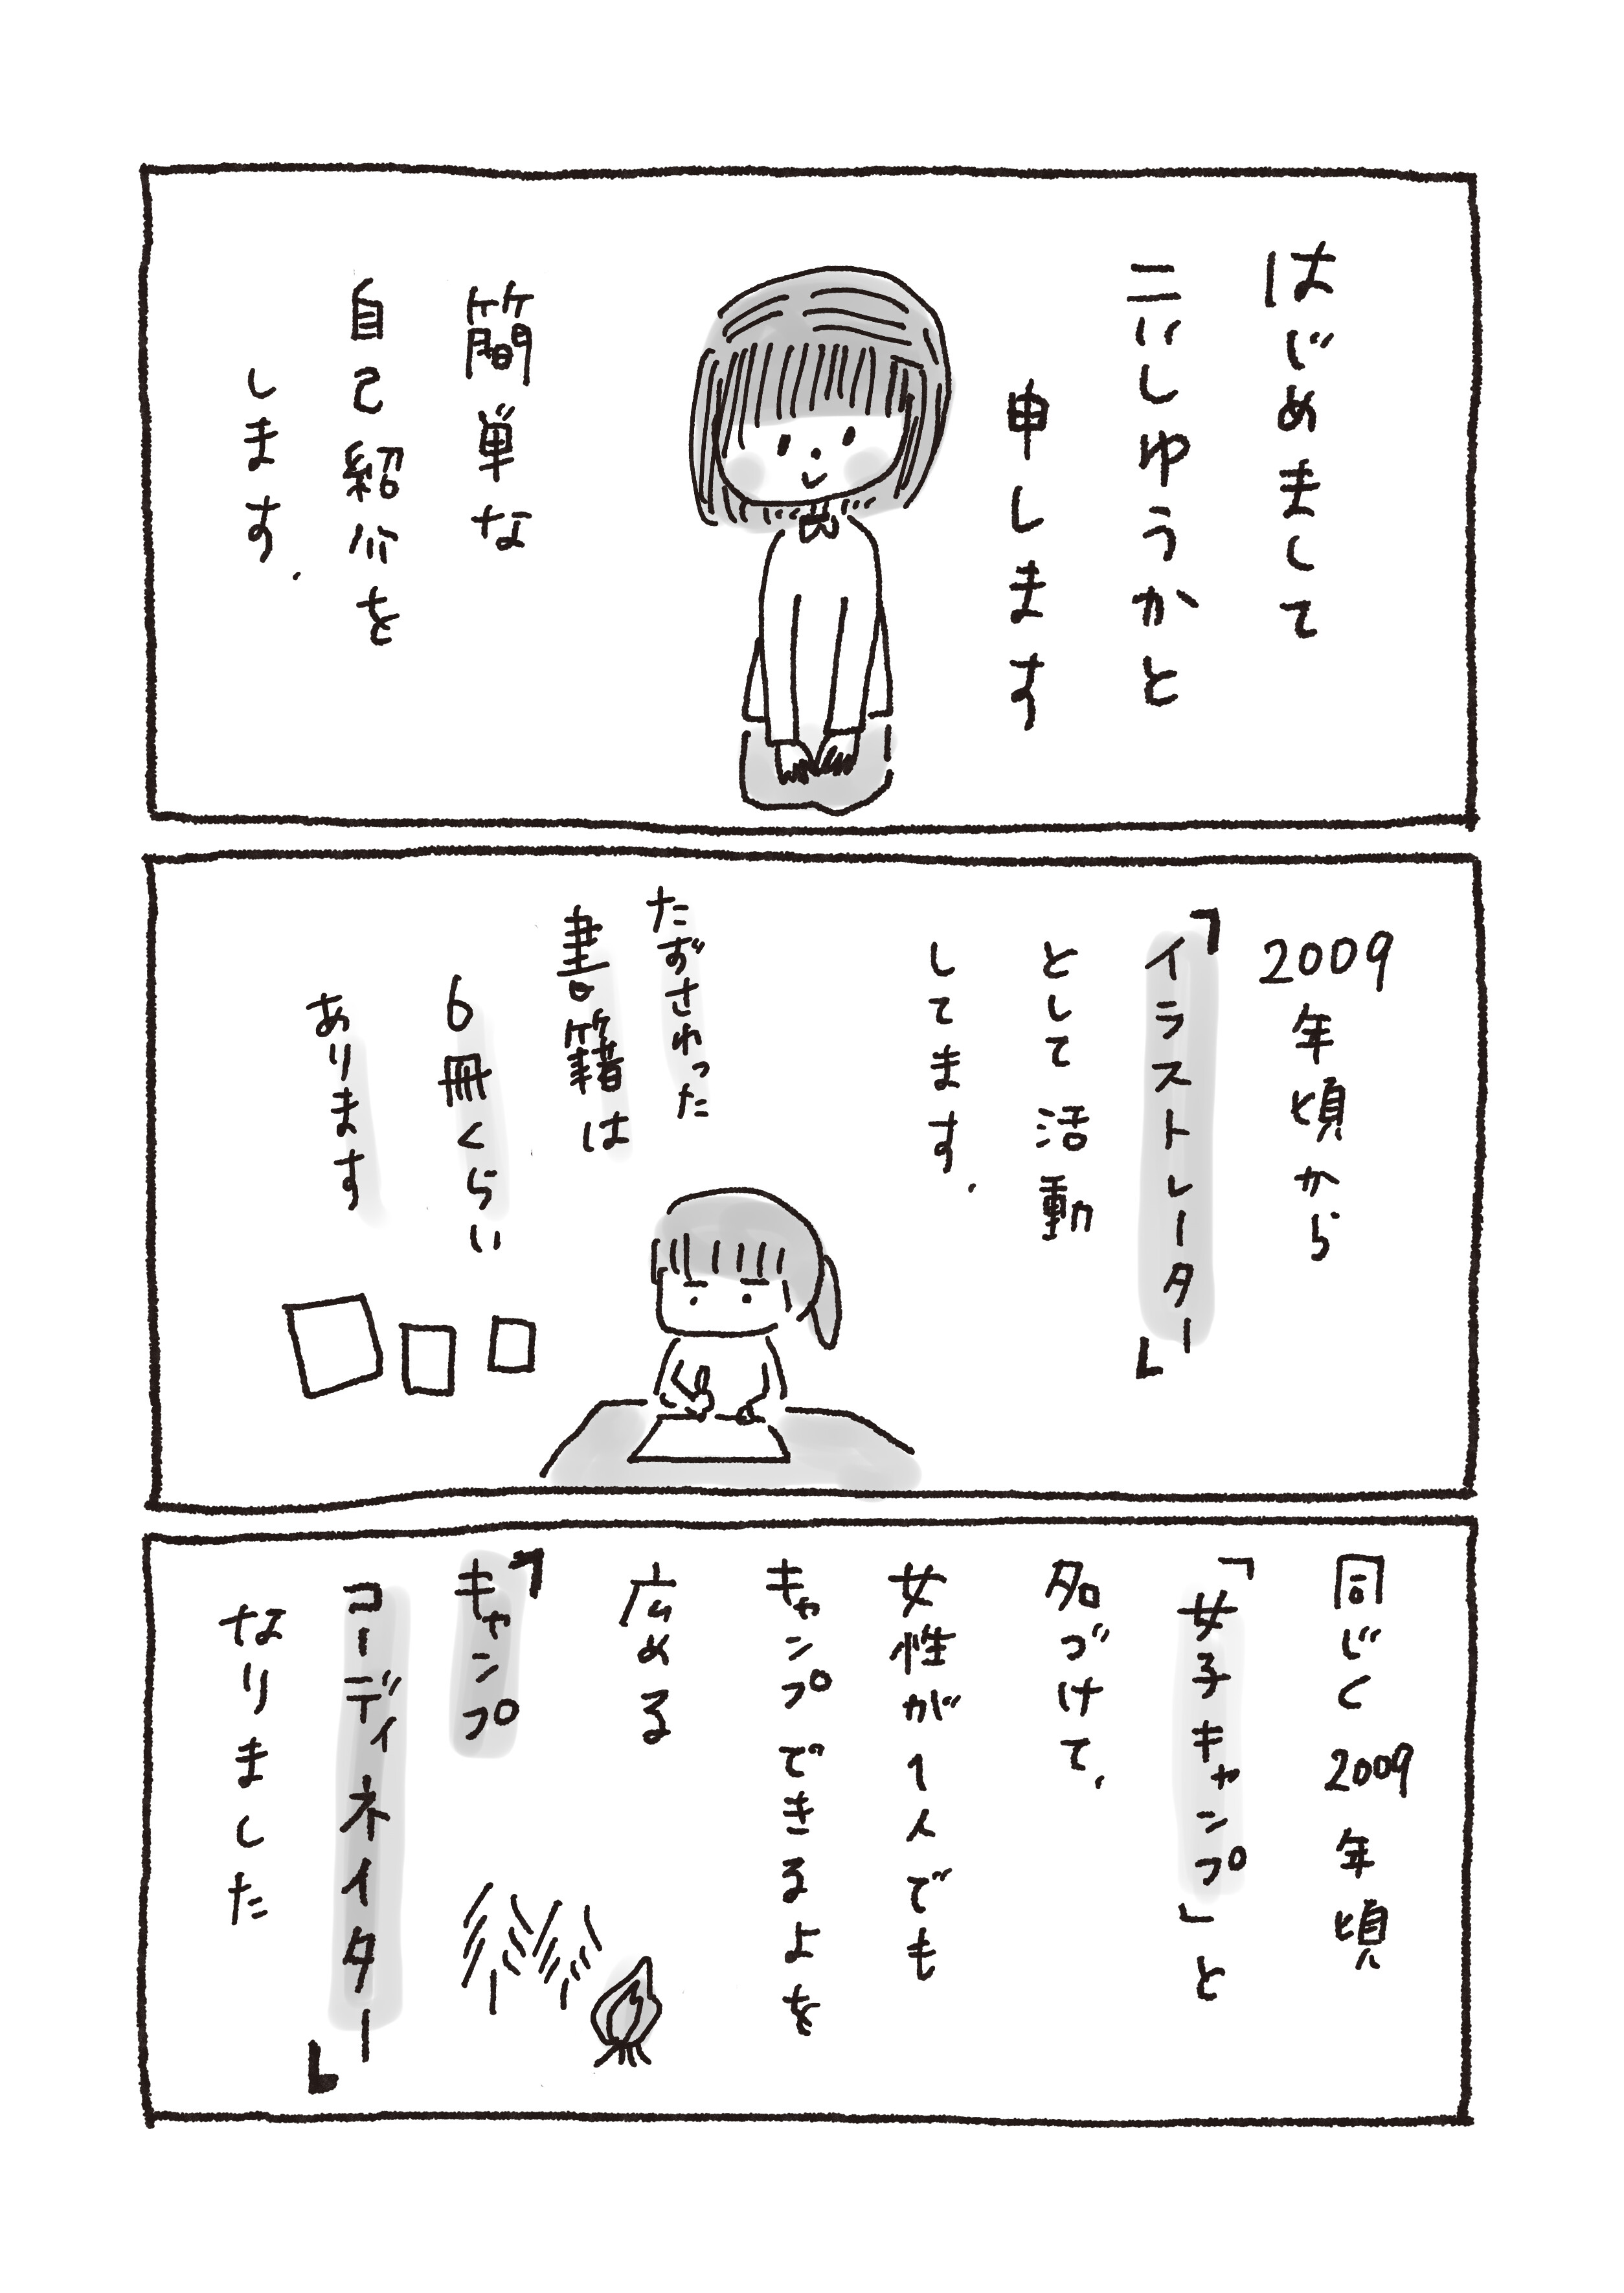 はじめまして
こいしゆうかと
申します
簡単な
自己紹介を
します.
2009年頃から
「イラストレーター」
として活動
してます.
たずさわった
書籍は
6冊くらい
あります
同じく2009年頃
「女子キャンプ」と
名づけて、
女性が1人でも
キャンプできるよを
広める
「キャンプ
コーディネイター」
なりました